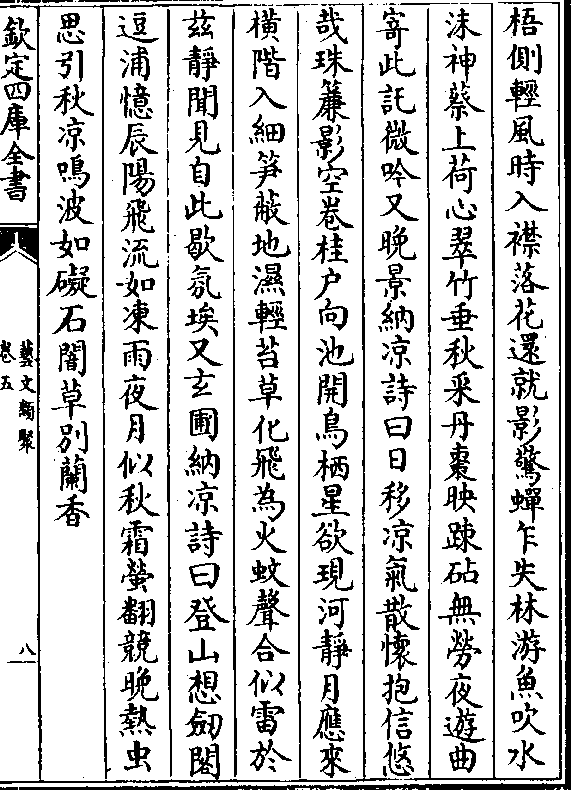 梧側輕風時入襟落花還就影驚蟬乍失林游魚吹水
沫神蔡上荷心翠竹垂秋采丹棗映疎砧無勞夜遊曲
寄此託微吟又晚景納凉詩曰日移凉氣散懷抱信悠
哉珠簾影空卷桂户向池開鳥栖星欲現河靜月應來
横階入細笋蔽地濕輕苔草化飛為火蚊聲合似雷於
兹靜聞見自此歇氛埃又玄圃納凉詩曰登山想劒閣
逗浦憶辰陽飛流如凍雨夜月似秋霜螢翻競晚熱虫
思引秋凉鳴波如礙石闇草别蘭香
欽定四庫全書
藝文類聚
卷五
八